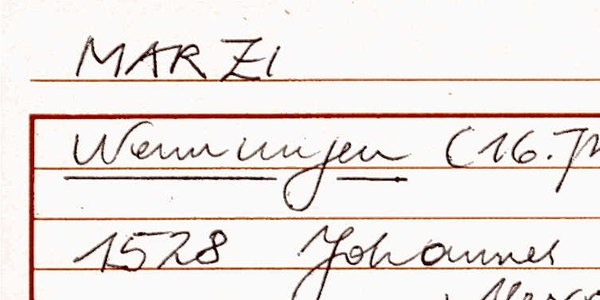 MARZI
Wemmingen (16.Jh
1528 Johannes